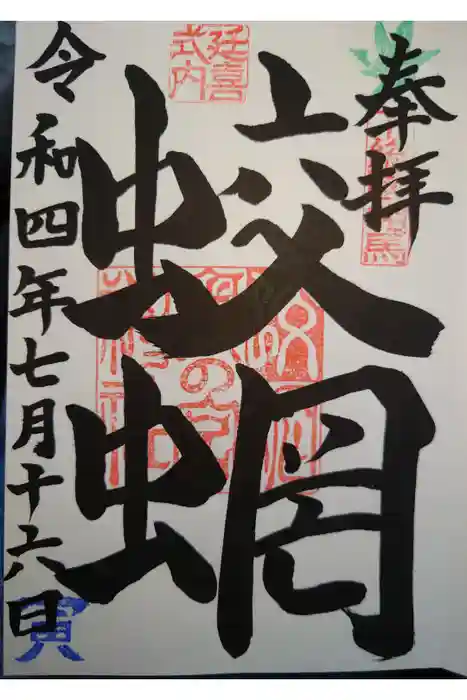 奉拝
延喜
式内
蛟蝄
令和四年七月十六日
寅